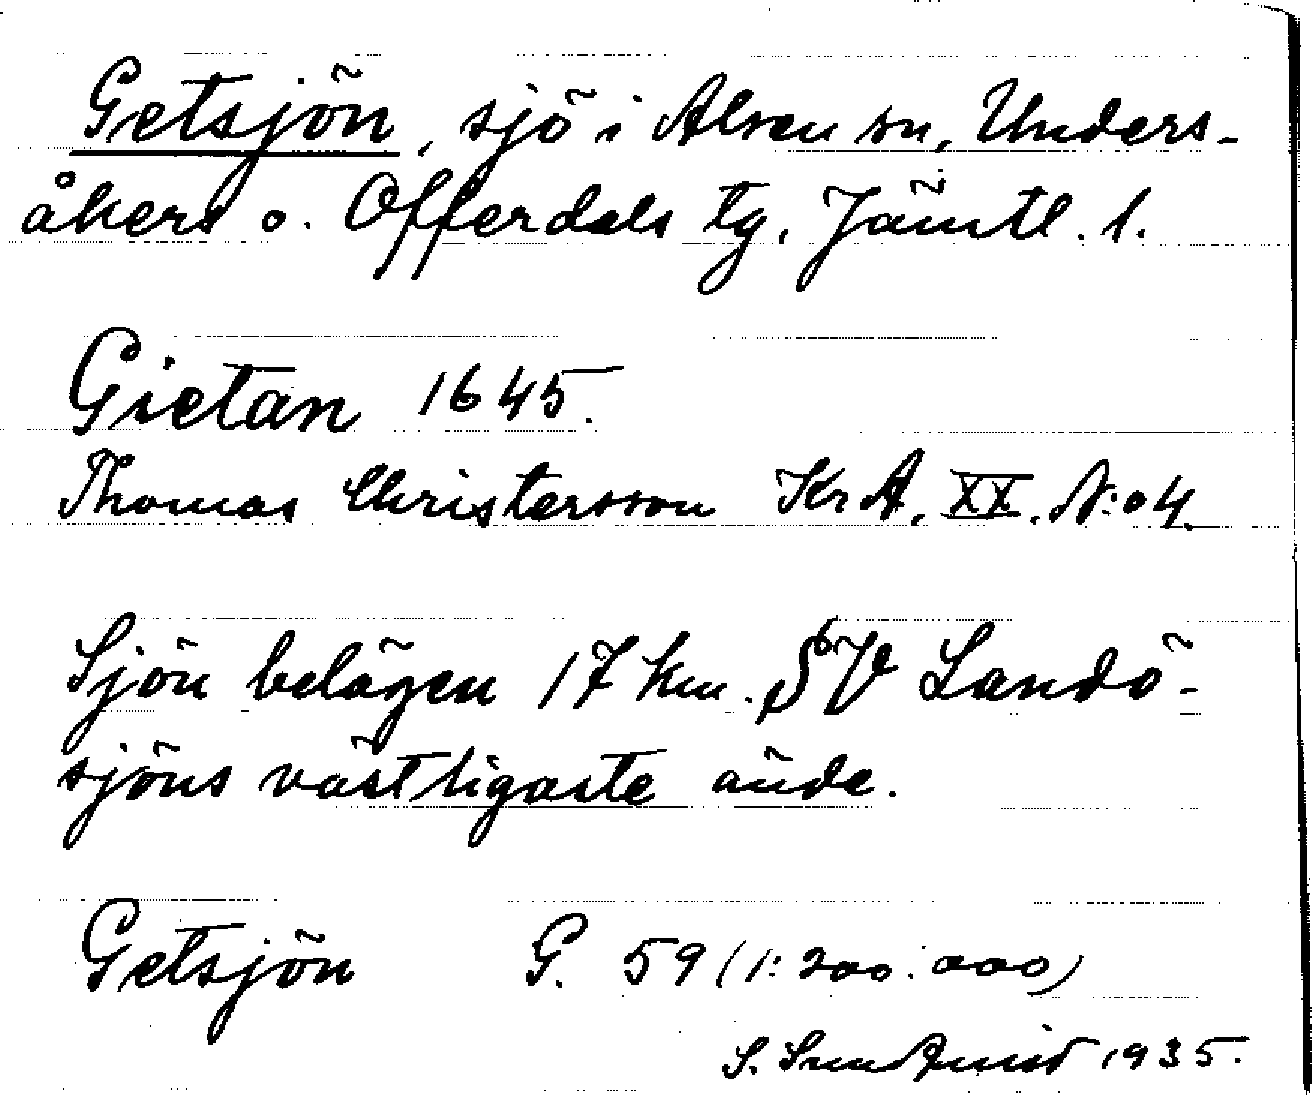 Getsjön, sjö i Alsen sn, Unders-
åkers o. Offerdals tg, Jämtl. l.
Gietan 1645.
Thomas Christersson KrA, XX. N:o 4.
Sjön belägen 17 km. SV Landö-
sjöns västligaste ände.
Getsjön G. 59 (1:200.000)
S. Sundqvist 1935.